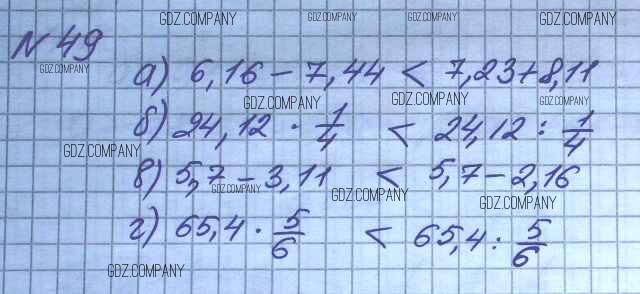 GDZ.COMPANY GDZ.COMPANY GDZ.COMPANY GDZ.COMPANY
№ 49
GDZ.COMPANY
а) 6,16 − 7,44 < 7,23+8,11
GDZ.COMPANY GDZ.COMPANY GDZ.COMPANY
б) 24,12 · 1/4 < 24,12 : 1/4
GDZ.COMPANY
в) 5,7 − 3,11 < 5,7 − 2,16
GDZ.COMPANY GDZ.COMPANY GDZ.COMPANY
г) 65,4 · 5/6 < 65,4 : 5/6
GDZ.COMPANY